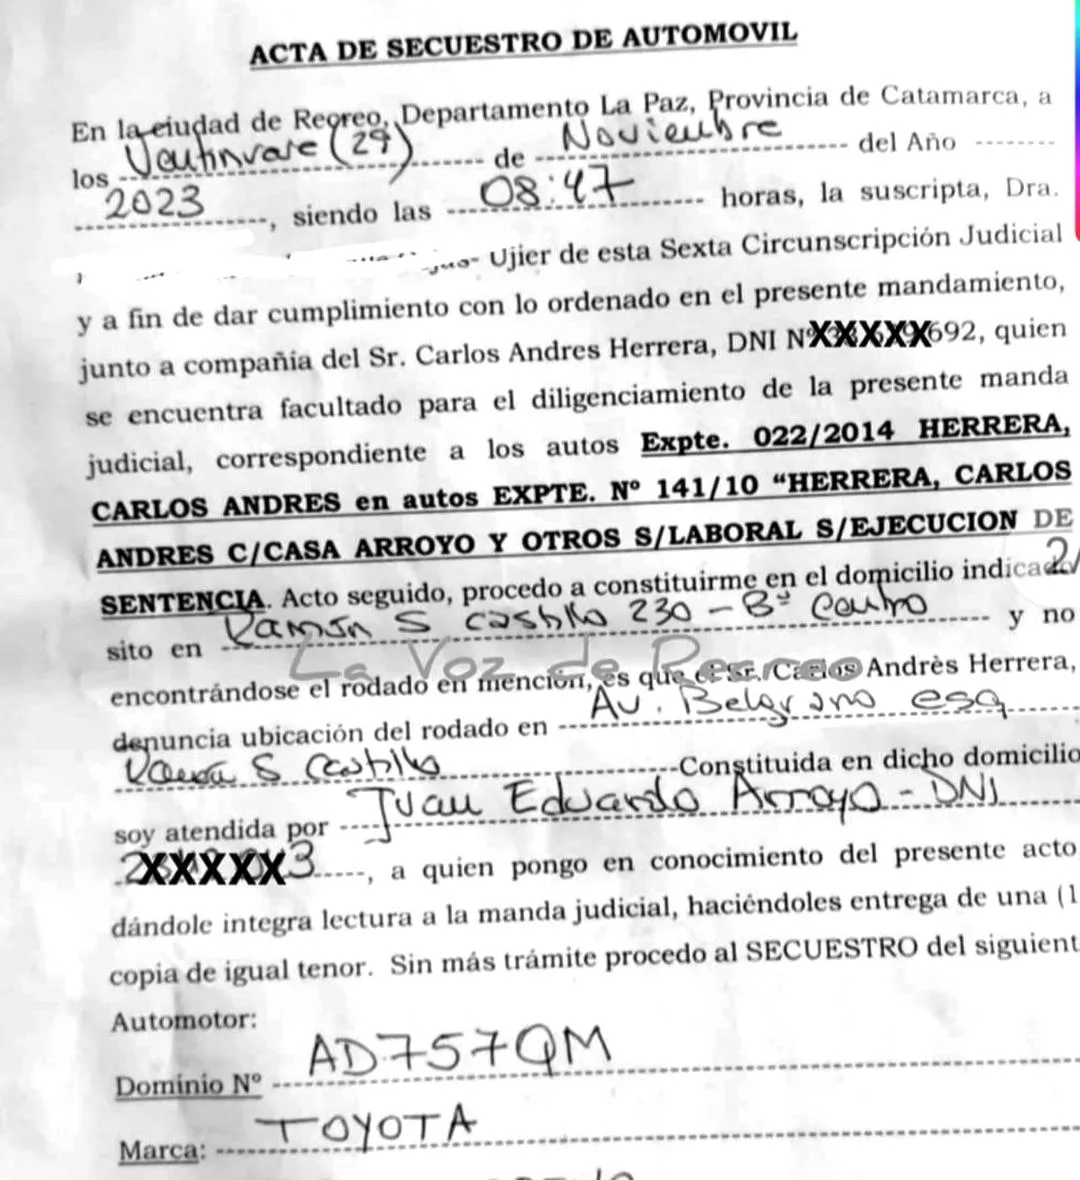 ACTA DE SECUESTRO DE AUTOMOVIL
En la ciudad de Recreo, Departamento La Paz, Provincia de Catamarca, a
los Veintinueve (29) de Noviembre del Año
2023, siendo las 08:47 horas, la suscripta, Dra.
Ujier de esta Sexta Circunscripción Judicial
y a fin de dar cumplimiento con lo ordenado en el presente mandamiento,
junto a compañia del Sr. Carlos Andres Herrera, DNI NºXXXXX692, quien
se encuentra facultado para el diligenciamiento de la presente manda
judicial, correspondiente a los autos Expte. 022/2014 HERRERA,
CARLOS ANDRES en autos EXPTE. Nº 141/10 “HERRERA, CARLOS
ANDRES C/CASA ARROYO Y OTROS S/LABORAL S/EJECUCION DE
SENTENCIA. Acto seguido, procedo a constituirme en el domicilio indicado
sito en Ramón S Castillo 230 - Bº Centro y no
La Voz de Recreo
encontrándose el rodado en mención, es que el Sr. Carlos Andrès Herrera,
denuncia ubicación del rodado en Av. Belgrano esq
S Castillo Constituida en dicho domicilio
soy atendida por Juan Eduardo Arroyo - DNI
2XXXXX3, a quien pongo en conocimiento del presente acto,
dándole integra lectura a la manda judicial, haciéndoles entrega de una (1
copia de igual tenor. Sin más trámite procedo al SECUESTRO del siguient
Automotor:
Dominio Nº AD757QM
Marca: TOYOTA